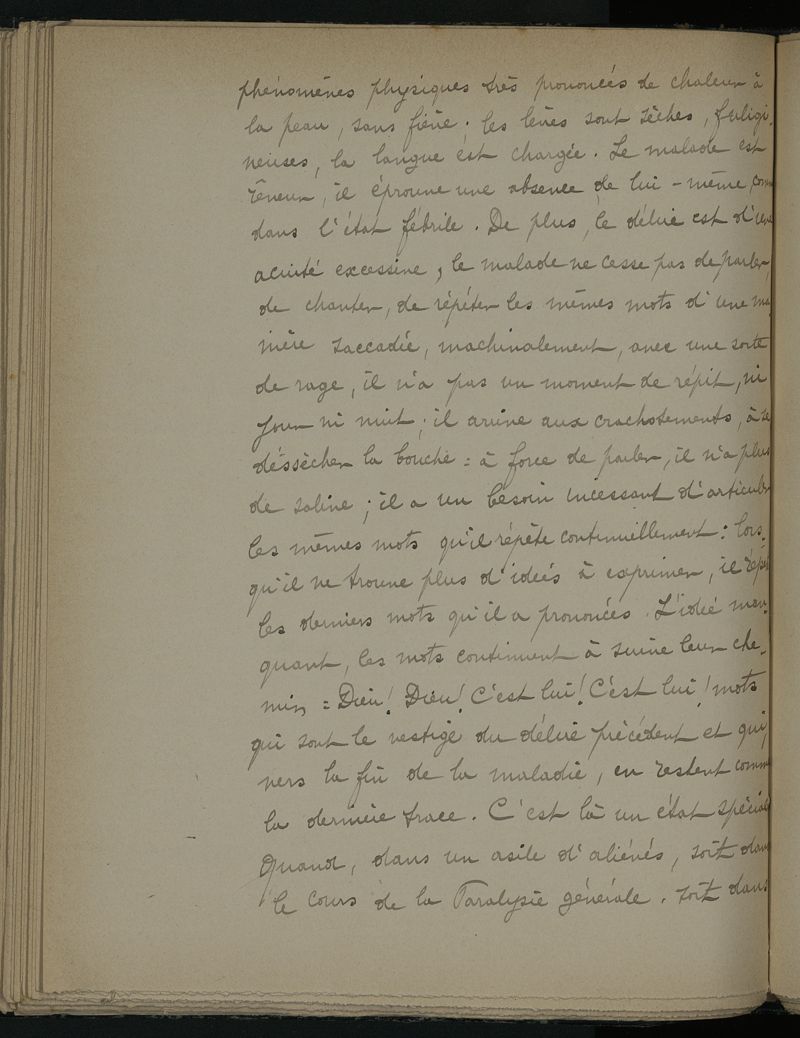 phénomènes physiques très prononcés de chaleur à
la peau, sans fièvre ; les lèvres sont sèches, fuligi-
neuses, la langue est chargée. Le malade est
rêveur, il éprouve une absence de lui-même, comme
dans l'état fébrile. De plus, le délire est d'une
acuité excessive, le malade ne cesse pas de parler,
de chanter, de répéter les mêmes mots d'une ma
nière saccadée, machinalement, avec une sorte
de rage, il n'a pas un moment de répit, ni
jour ni nuit ; il arrive aux crachotements, à se
déssècher la bouche = à force de parler, il n'a plus
de salive ; il a un besoin incessant d'articuler
les mêmes mots qu'il répète continuellement : lors-
qu'il ne trouve plus d'idées à exprimer, il répète
les derniers mots qu'il a prononcés. L'idée man-
quant, les mots continuent à suivre leur che-
min = Dieu ! Dieu ! C'est lui ! C'est lui ! mots
qui sont le vestige du délire précédent et qui,
vers la fin de la maladie, en restent comme
la dernière trace. C'est là un état spécial
Quand, dans un asile d'aliénés, soit dans
le cours de la Paralysie générale, soit dans